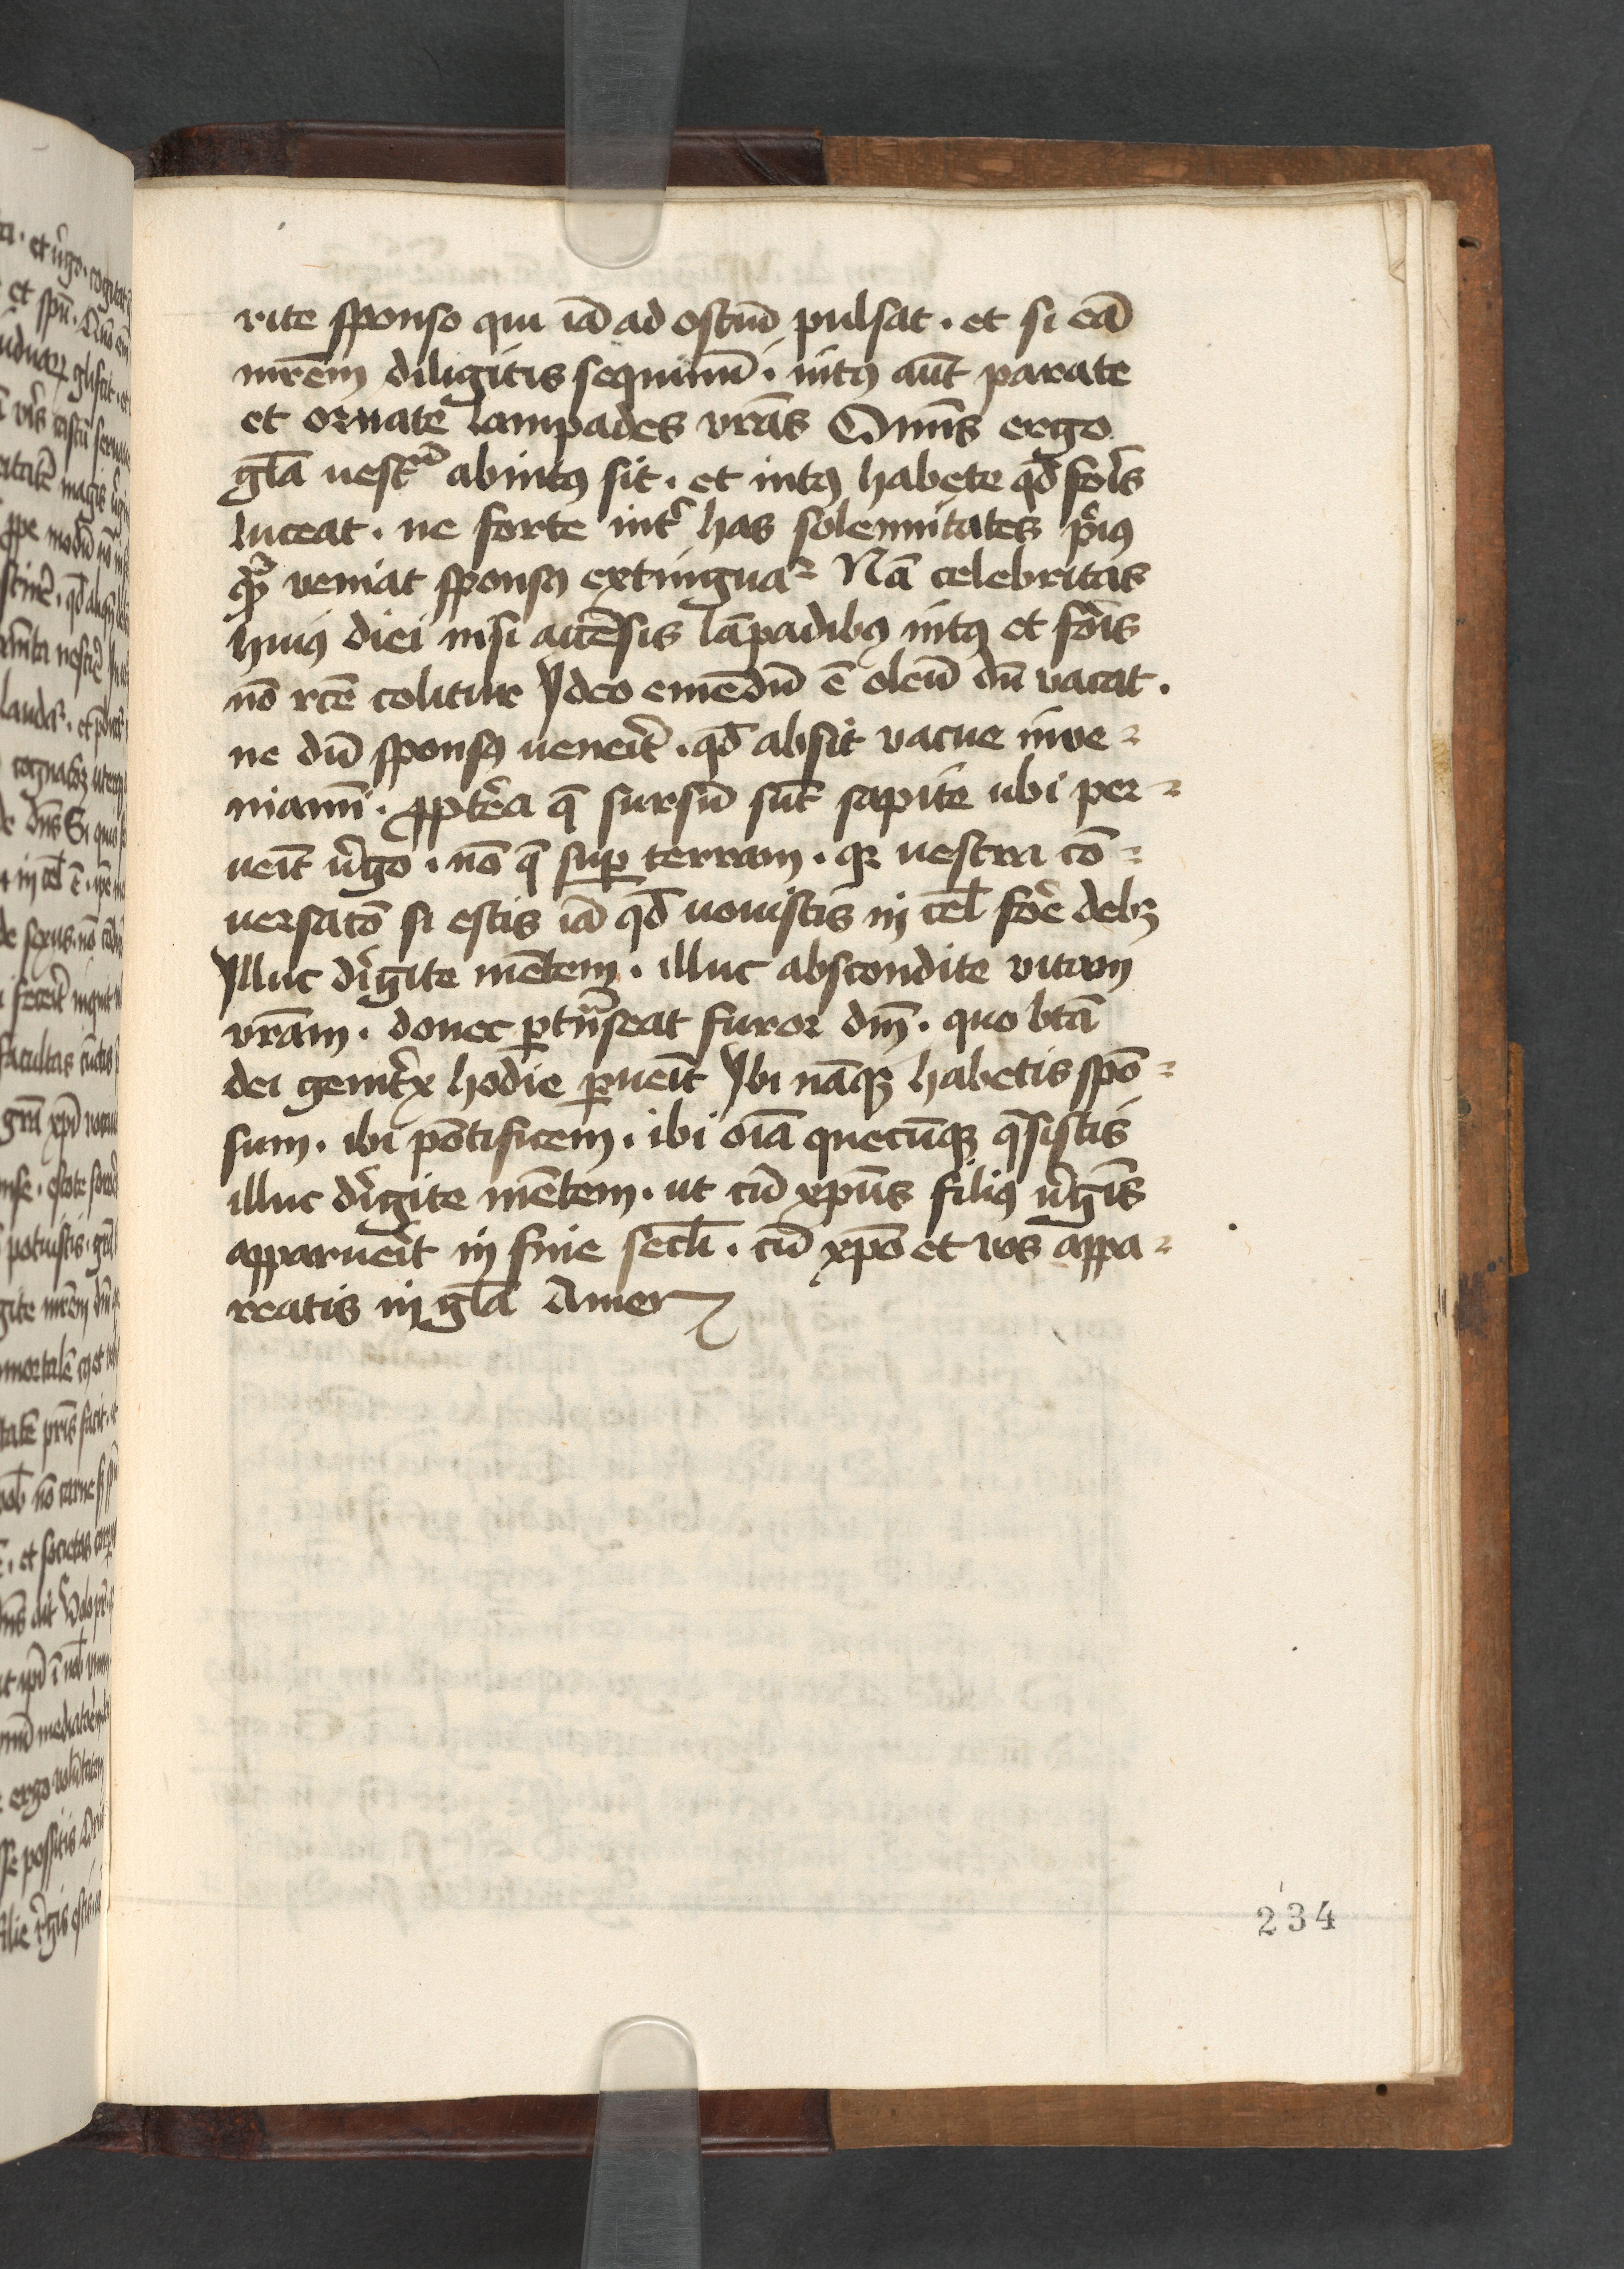 rite sponso qui iā ad ostiū pulsat . et si eā
mr̄em diligitis sequimī . intꝰ aūt parate
et ornate lampades vr̄as Om̄is ergo
gl̄a vestrā abintꝰ sit . et intꝰ habete qd̄ foris
luceat . ne forte int̉ has solennitates priꝰ
qᷓꝫ veniat sponsꝰ extinguaᷣ Nā celebritas
huiꝰ diei nisi accēsis lāpadibꝰ intꝰ et foīs
nō rc̄e colitur Ydeo emēdū ē oleū dū vacat .
ne dū sponsꝰ uenerit . qd̄ absit vacue inve=
niamī . ꝓpterea q̄ sursū sūt sapite ubi per=
ueīt v̉go . nō q̄ suꝑ terram . qꝛ uestra cō=
versatō si estis iā qd̄ uouistis in cel̄ fore debꝫ
Ylluc dirigite mētem . illuc abscondite vitam
vr̄am . donec ꝑtrānseat furor dm̄ . quo btā
dei genitrix hodie ꝑueīt Ybi nāqꝫ habetis spō=
sum . ibi pōtificem . ibi oīa quecūqꝫ q̄sistis
illuc dirigite mētem . ut cū xp̄us filiꝰ v̉gīs
apparuerit in fine secl̄i . cū xp̄o et vos appa=
reatis in gl̄a Amen
234